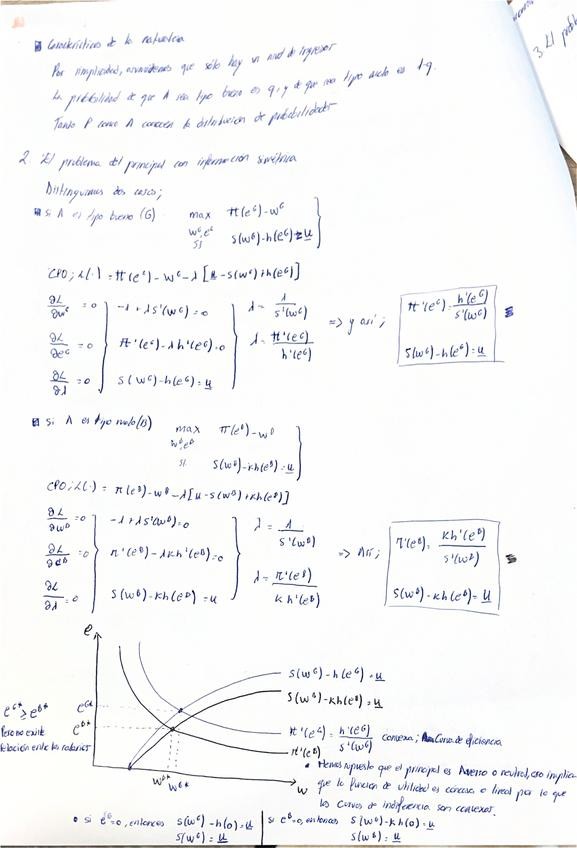 Características de la naturaleza
Por simplicidad, asumiremos que sólo hay un nivel de ingresos
La probabilidad de que A sea tipo bueno es q, y de que sea tipo malo es 1-q.
Tanto P como A conocen la distribución de probabilidades
3. El prob
2. El problema del principal con información simétrica
Distinguimos dos casos;
Si A es tipo bueno (G)
max π(e^G)-w^G
w^G,e^G
si S(w^G)-h(e^G)=u
CPO; L(·)=π(e^G)-w^G-λ[u-s(w^G)+h(e^G)]
∂L/∂w^G =0 -1+λs'(w^G)=0 λ=1/s'(w^G)
∂L/∂e^G =0 π'(e^G)-λh'(e^G)=0 λ=π'(e^G)/h'(e^G)
∂L/∂λ =0 s(w^G)-h(e^G)=u
=> y así; π'(e^G)=h'(e^G)/s'(w^G)
s(w^G)-h(e^G)=u
Si A es tipo malo (B)
max π(e^B)-w^B
w^B,e^B
si S(w^B)-kh(e^B)=u
CPO; L(·)= π(e^B)-w^B-λ[u-s(w^B)+kh(e^B)]
∂L/∂w^B =0 -1+λs'(w^B)=0 λ=1/s'(w^B)
∂L/∂e^B =0 π'(e^B)-λkh'(e^B)=0 λ=π'(e^B)/kh'(e^B)
∂L/∂λ =0 S(w^B)-kh(e^B)=u
=> Así; π'(e^B)=kh'(e^B)/s'(w^B)
S(w^B)-kh(e^B)=u
e
S(w^G)-h(e^G)=u
S(w^B)-kh(e^B)=u
e^G* ≥ e^B*
Pero no existe
relación entre los salarios
e^G*
e^B*
π'(e^G)=h'(e^G)/s'(w^G) convexa; Curva de eficiencia
π'(e^B)
w^B* w^G*
w
• Hemos supuesto que el principal es Averso o neutral, eso implica
que la función de utilidad es cóncava o lineal por lo que
las curvas de indiferencia son convexas.
• si e^G=0, entonces S(w^G)-h(0)=u
S(w^G)=u
si e^B=0, entonces S(w^B)-kh(0)=u
S(w^B)=u